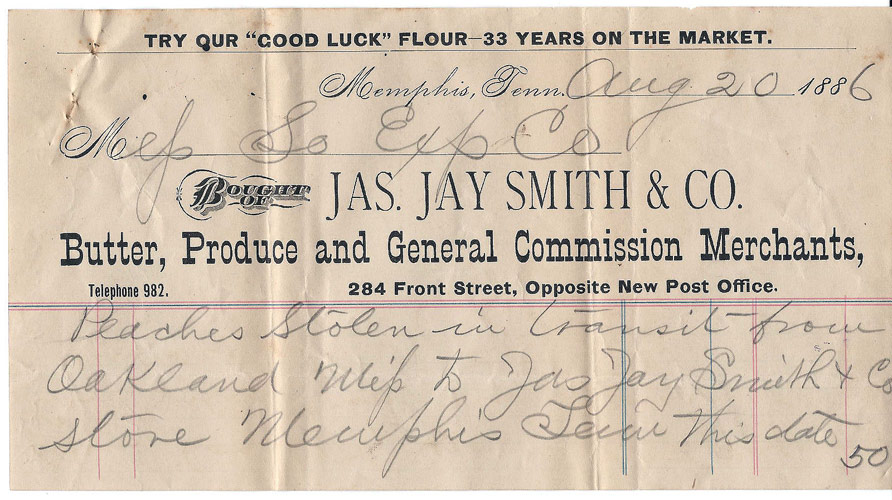 TRY OUR "GOOD LUCK" FLOUR—33 YEARS ON THE MARKET.
Memphis, Tenn. Aug 20 1886
Mess So Exp Co
BOUGHT OF JAS. JAY SMITH & CO.
Butter, Produce and General Commission Merchants,
Telephone 982. 284 Front Street, Opposite New Post Office.
Peaches Stolen in transit from
Oakland Miss to Jas Jay Smith & Co
store Memphis Tenn this date
50